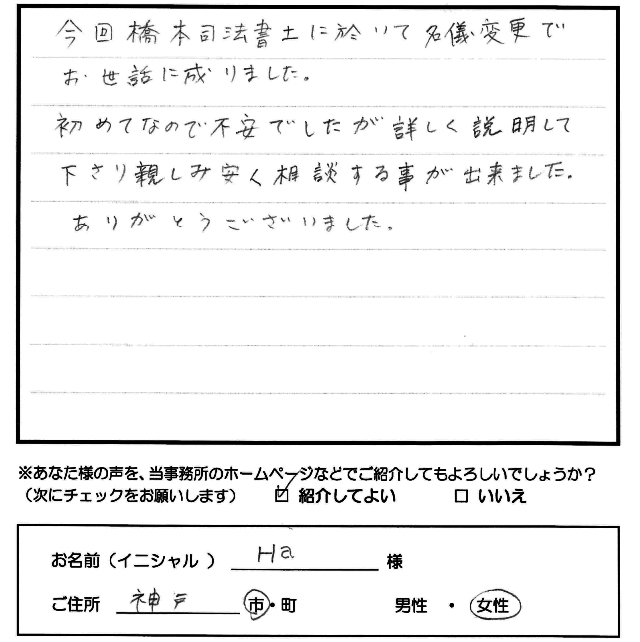 今回橋本司法書士に於いて名儀変更で
お世話に成りました。
初めてなので不安でしたが詳しく説明して
下さり親しみ安く相談する事が出来ました。
ありがとうございました。
※あなた様の声を、当事務所のホームページなどでご紹介してもよろしいでしょうか？
（次にチェックをお願いします） ☑ 紹介してよい □ いいえ
お名前（イニシャル ） Ha 様
ご住所 神戸 市・町 男性 ・ 女性